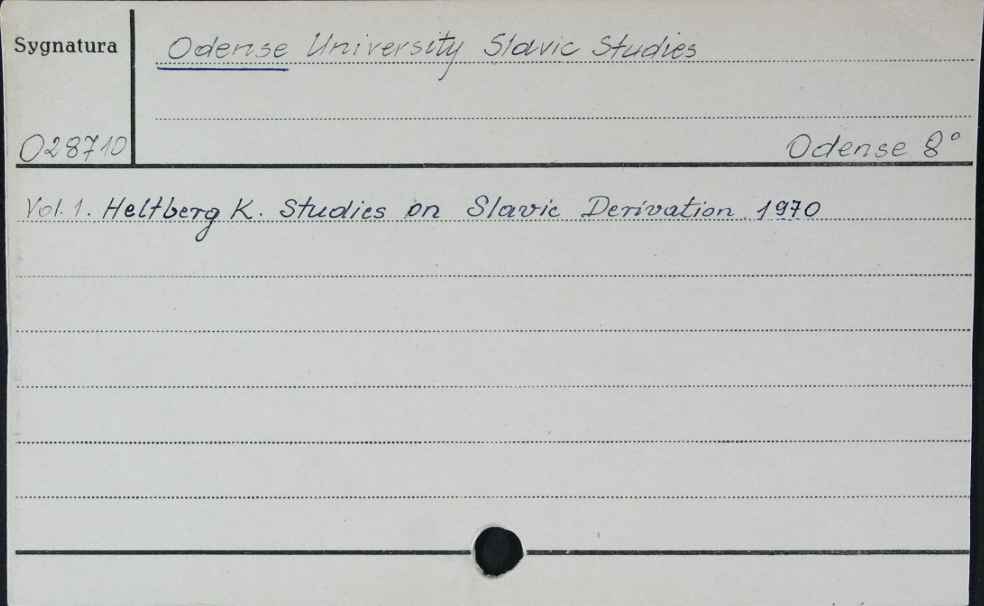 Sygnatura
Odense University Slavic Studies
O28710
Odense 8°
Vol. 1. Heltberg K. Studies on Slavic Derivation. 1970